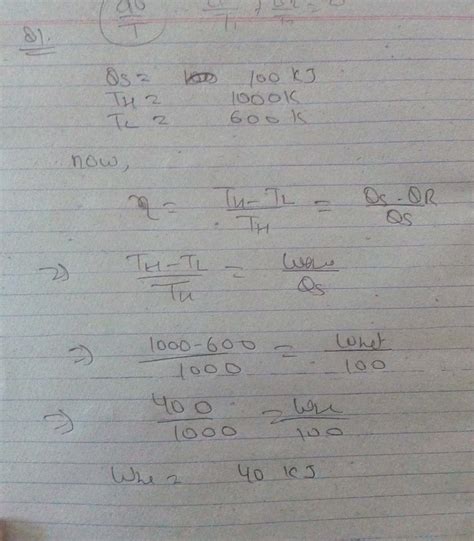 8).
Qs = 100 KJ
TH = 1000K
TL = 600K
now,
η = TH-TL/TH = Qs-QR/Qs
⇒ TH-TL/TH = Wne/Qs
⇒ 1000-600/1000 = Wnet/100
⇒ 400/1000 = Wne/100
Wne = 40 KJ